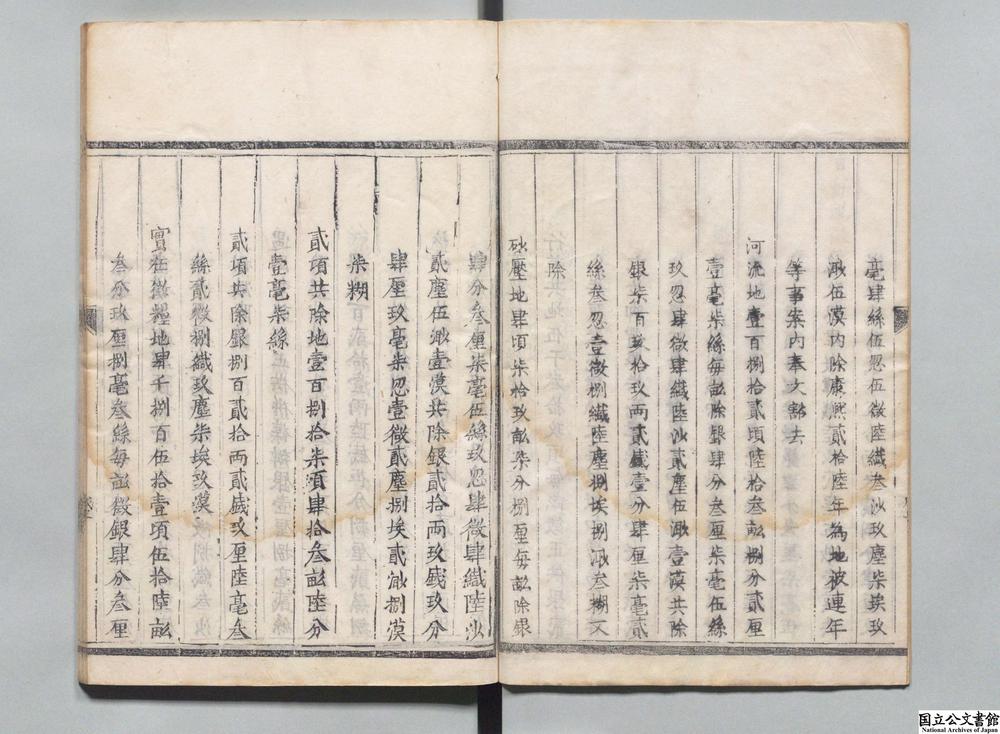 毫肆絲伍忽伍微陸纎叁沙玖塵柒埃玖
渺伍漠内除康熙貳拾陸年為地被連年
等事案内奉文豁去
河流地壹百捌拾貳頃陸拾叁畝捌分貳厘
壹毫柒絲每畝除銀肆分叁厘柒毫伍絲
玖忽肆微肆纎陸沙貳塵伍渺壹漠共除
銀柒百玖拾玖兩貳錢壹分肆厘柒毫貳
絲叁忽壹微捌纎陸塵捌埃捌渺叁糊又
除
砂壓地肆頃柒拾玖畝柒分捌厘每畝除銀
肆分叁厘柒毫伍絲玖忽肆微肆纎陸沙
貳塵伍渺壹漠共除銀貳拾兩玖錢玖分
肆厘玖毫柒忽壹微貳塵捌埃貳渺捌漠
柒糊
貳項共除地壹百捌拾柒頃肆拾叁畝陸分
壹毫柒絲
貳項共除銀捌百貳拾兩貳錢玖厘陸毫叁
絲貳微捌纎玖塵柒埃玖漠
實在徵糧地肆千捌百伍拾壹頃伍拾陸畝
叁分玖厘捌毫叁絲每畝徵銀肆分叁厘
国立公文書館
National Archives of Japan